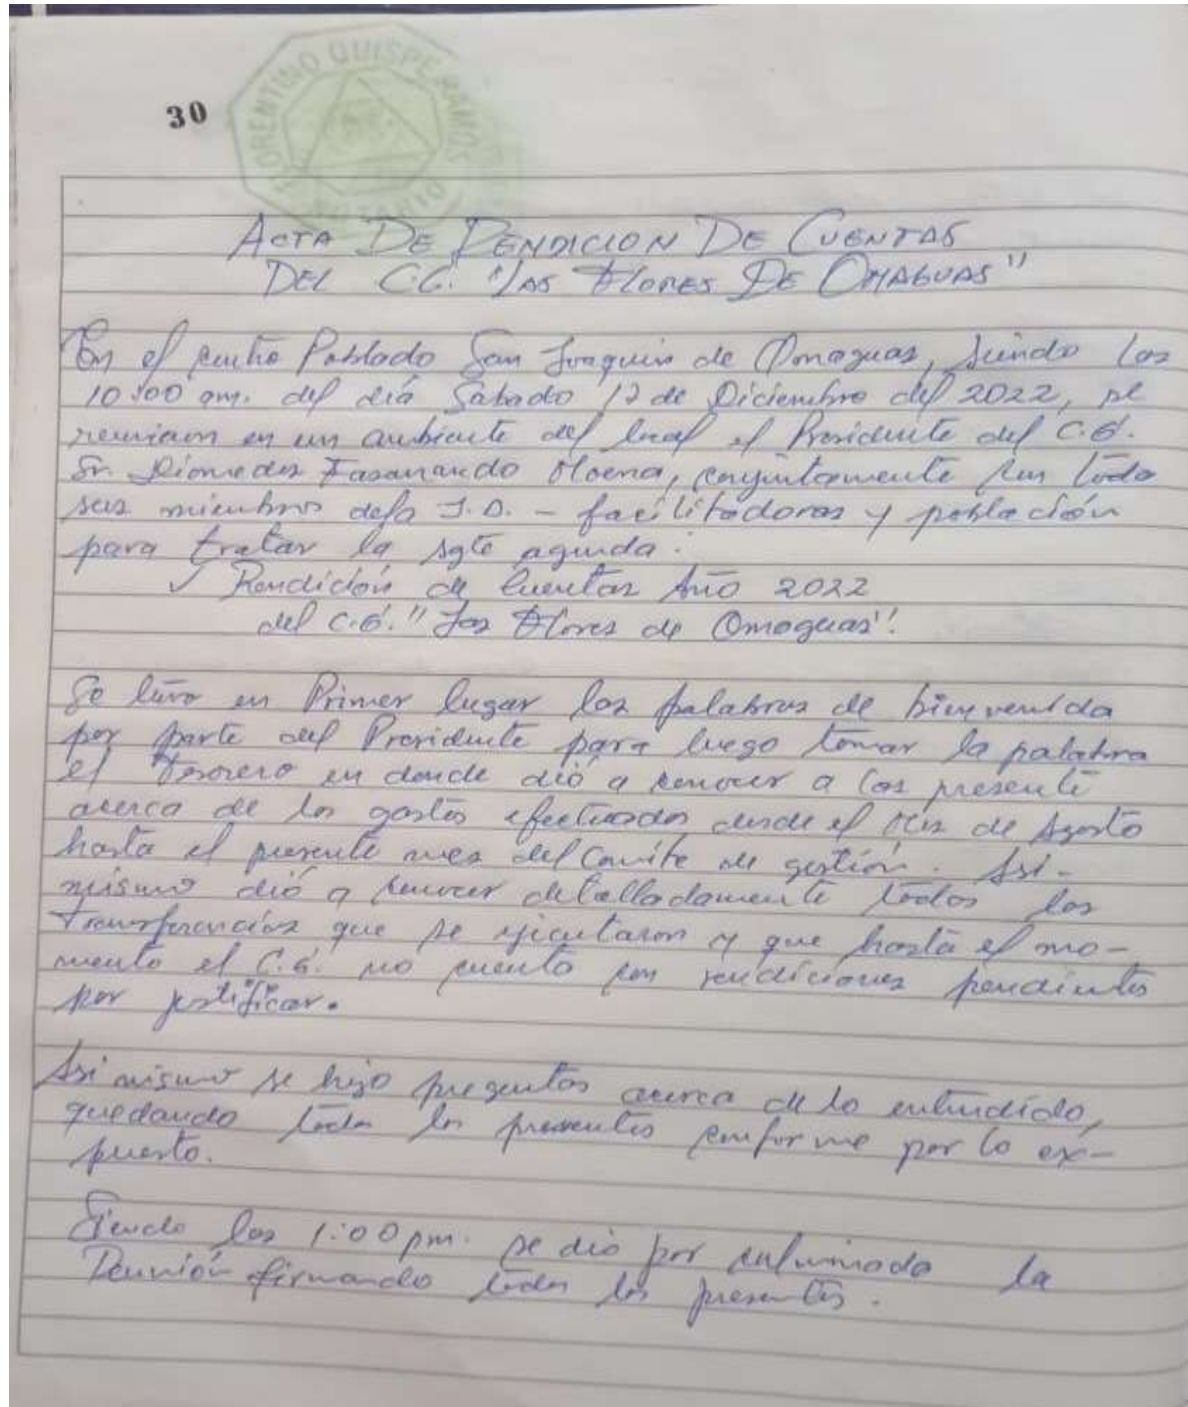 30
FLORENTINO QUISPE RAMOS
ACTA DE RENDICION DE CUENTAS
DEL C.G. "LAS FLORES DE OMAGUAS"
En el centro Poblado San Joaquin de Omaguas, siendo las
10:00 am. del día Sabado 12 de Diciembre del 2022, se
reunieron en un ambiente del local el Presidente del C.G.
Sr. Diomedes Fasanando, conjuntamente con todo
sus miembros dela J.D. - facilitadoras y población
para tratar la sgte agenda:
✓ Rendición de Cuentas Año 2022
del C.G. "Las Flores de Omaguas".
Se tuvo en Primer lugar las palabras de bienvenida
por parte del Presidente para luego tomar la palabra
el Tesorero en donde dió a conocer a los presente
acerca de los gastos efectuados desde el Mes de Agosto
hasta el presente mes del Comite de gestión. Asi-
mismo dió a conocer detalladamente todos las
transferencias que se ejecutaron y que hasta el mo-
mento el C.G. no cuenta con rendiciones pendientes
por justificar.
Asi mismo se hizo preguntas acerca de lo entendido,
quedando todos los presentes conforme por lo ex-
puesto.
Siendo las 1:00 pm. se dio por culminada la
Reunión firmando todos los presentes.